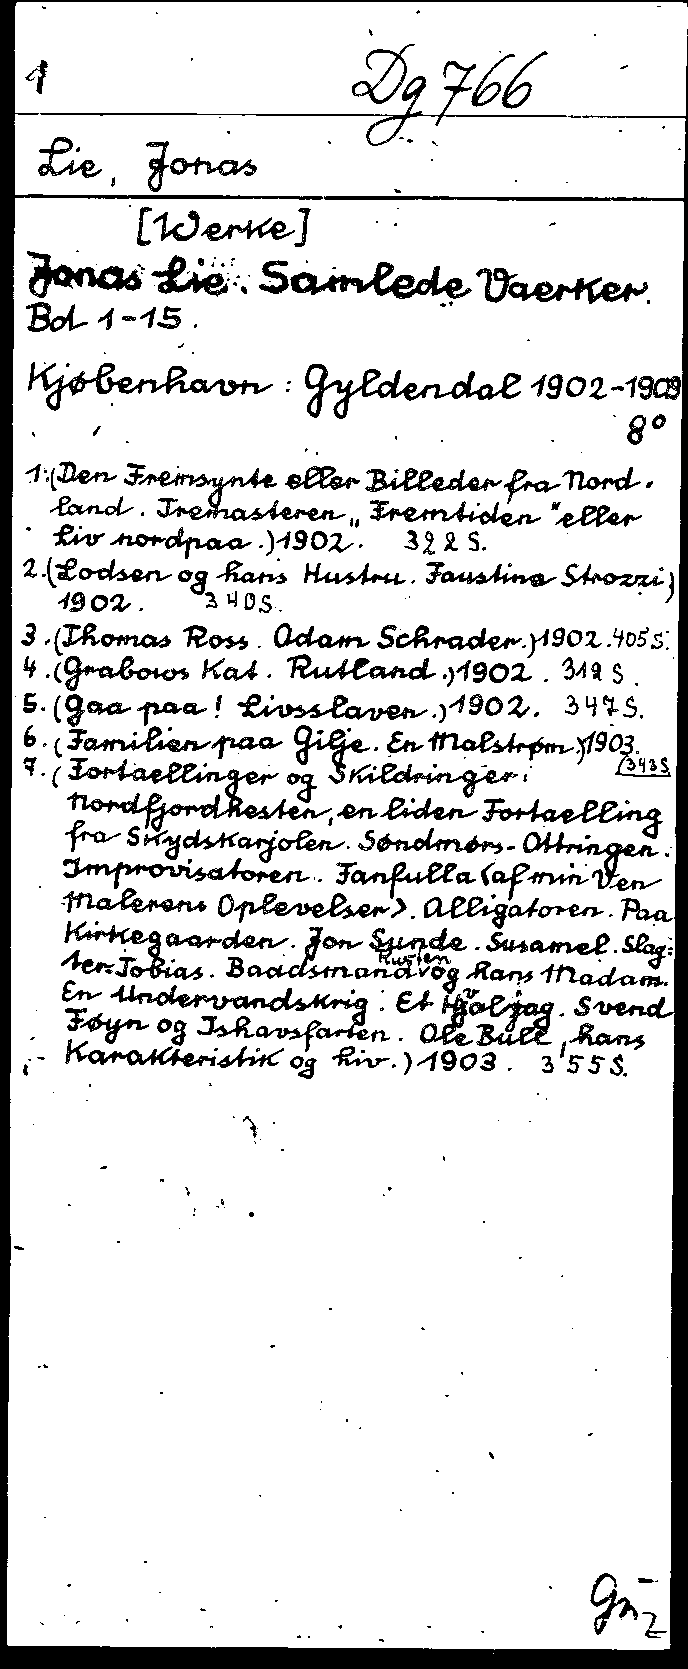 1
Dg 766
Lie, Jonas
[Werke]
Jonas Lie. Samlede Vaerker.
Bd 1-15.
Kjøbenhavn: Gyldendal 1902-1909
8°
1. (Den Fremsynte eller Billeder fra Nord-
land. Tremasteren „Fremtiden" eller
Liv nordpaa.) 1902. 322 S.
2. (Lodsen og hans Hustru. Faustina Strozzi)
1902. 340 S.
3. (Thomas Ross. Adam Schrader.) 1902. 405 S.
4. (Grabows Kat. Rutland.) 1902. 312 S.
5. (Gaa paa! Livsslaven.) 1902. 347 S.
6. (Familien paa Gilje. En Malstrøm.) 1903.
(343 S.
7. (Fortaellinger og Skildringer:
Nordfjordhesten, en liden Fortaelling
fra Skydskarjolen. Søndmørs-Ottringen.
Improvisatoren. Fanfulla <af min Ven
Malerens Oplevelser>. Alligatoren. Paa
Kirkegaarden. Jon Sunde. Susamel. Slag-
ter-Tobias. Baadsmand Kursten og hans Madam.
En Undervandskrig. Et Hvaljag. Svend
Føyn og Ishavsfarten. Ole Bull, hans
Karakteristik og Liv.) 1903. 355 S.